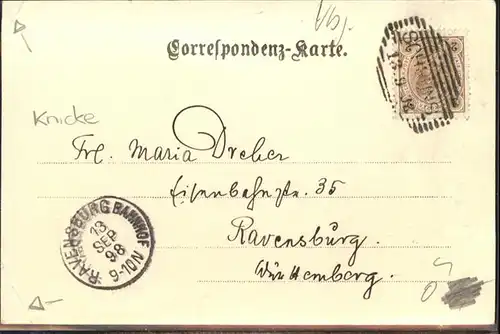 Correspondenz-Karte.
Knicke
Frl. Maria Dreher
Eisenbahnstr. 35
Ravensburg.
Württemberg.
RAVENSBURG BAHNHOF
13
SEP
98
9-10N